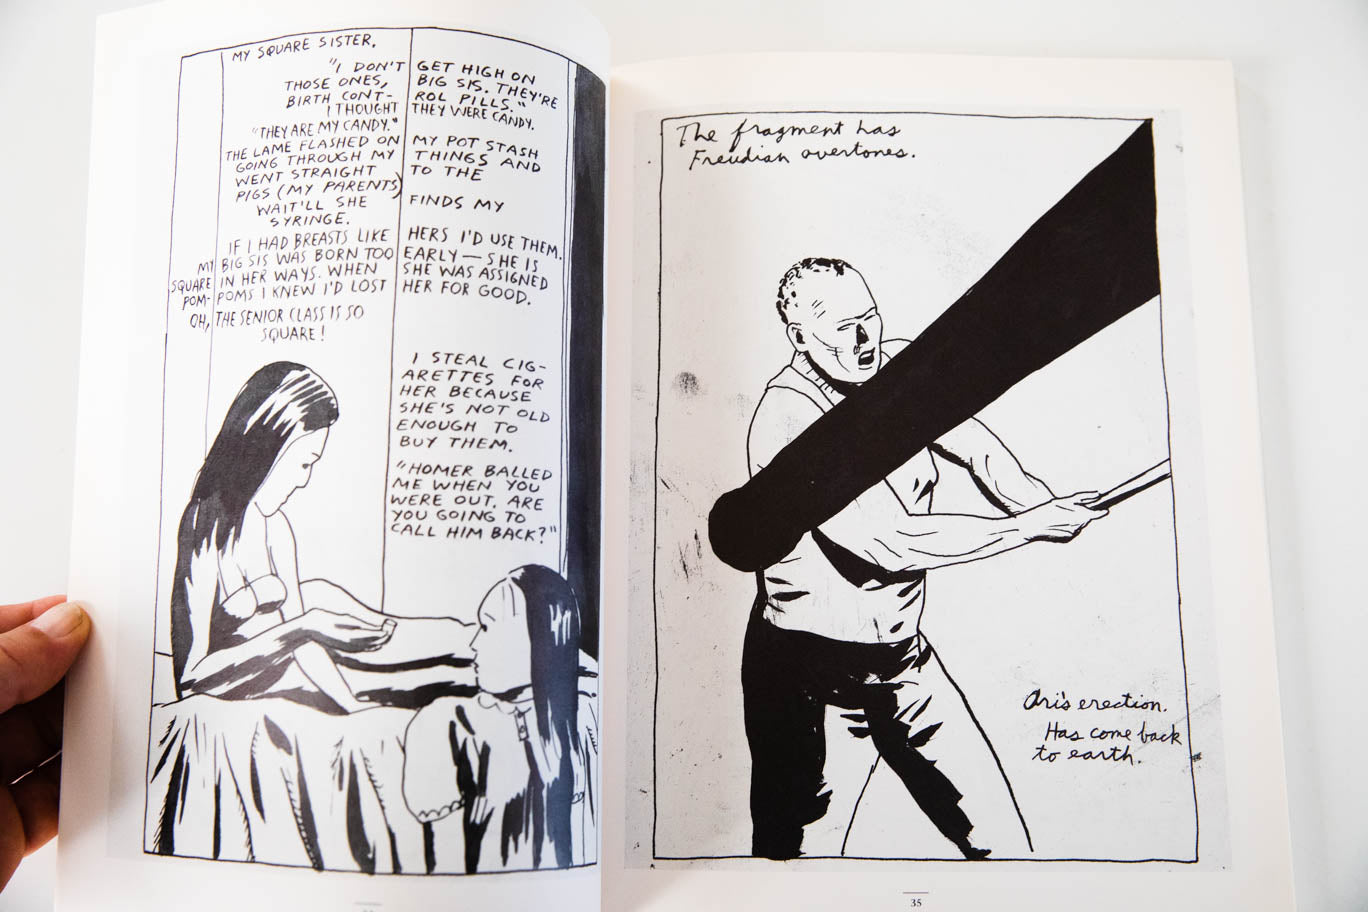 MY SQUARE SISTER.
"I DON'T GET HIGH ON
THOSE ONES, BIG SIS. THEY'RE
BIRTH CONT- ROL PILLS."
I THOUGHT THEY WERE CANDY.
"THEY ARE MY CANDY."
THE LAME FLASHED ON MY POT STASH
GOING THROUGH MY THINGS AND
WENT STRAIGHT TO THE
PIGS (MY PARENTS)
WAIT'LL SHE FINDS MY
SYRINGE.
IF I HAD BREASTS LIKE HERS I'D USE THEM.
MY BIG SIS WAS BORN TOO EARLY — SHE IS
SQUARE IN HER WAYS. WHEN SHE WAS ASSIGNED
POM- POMS I KNEW I'D LOST HER FOR GOOD.
OH, THE SENIOR CLASS IS SO
SQUARE!
I STEAL CIG-
ARETTES FOR
HER BECAUSE
SHE'S NOT OLD
ENOUGH TO
BUY THEM.
"HOMER BALLED
ME WHEN YOU
WERE OUT. ARE
YOU GOING TO
CALL HIM BACK?"
The fragment has
Freudian overtones.
Ari's erection.
Has come back
to earth.
35